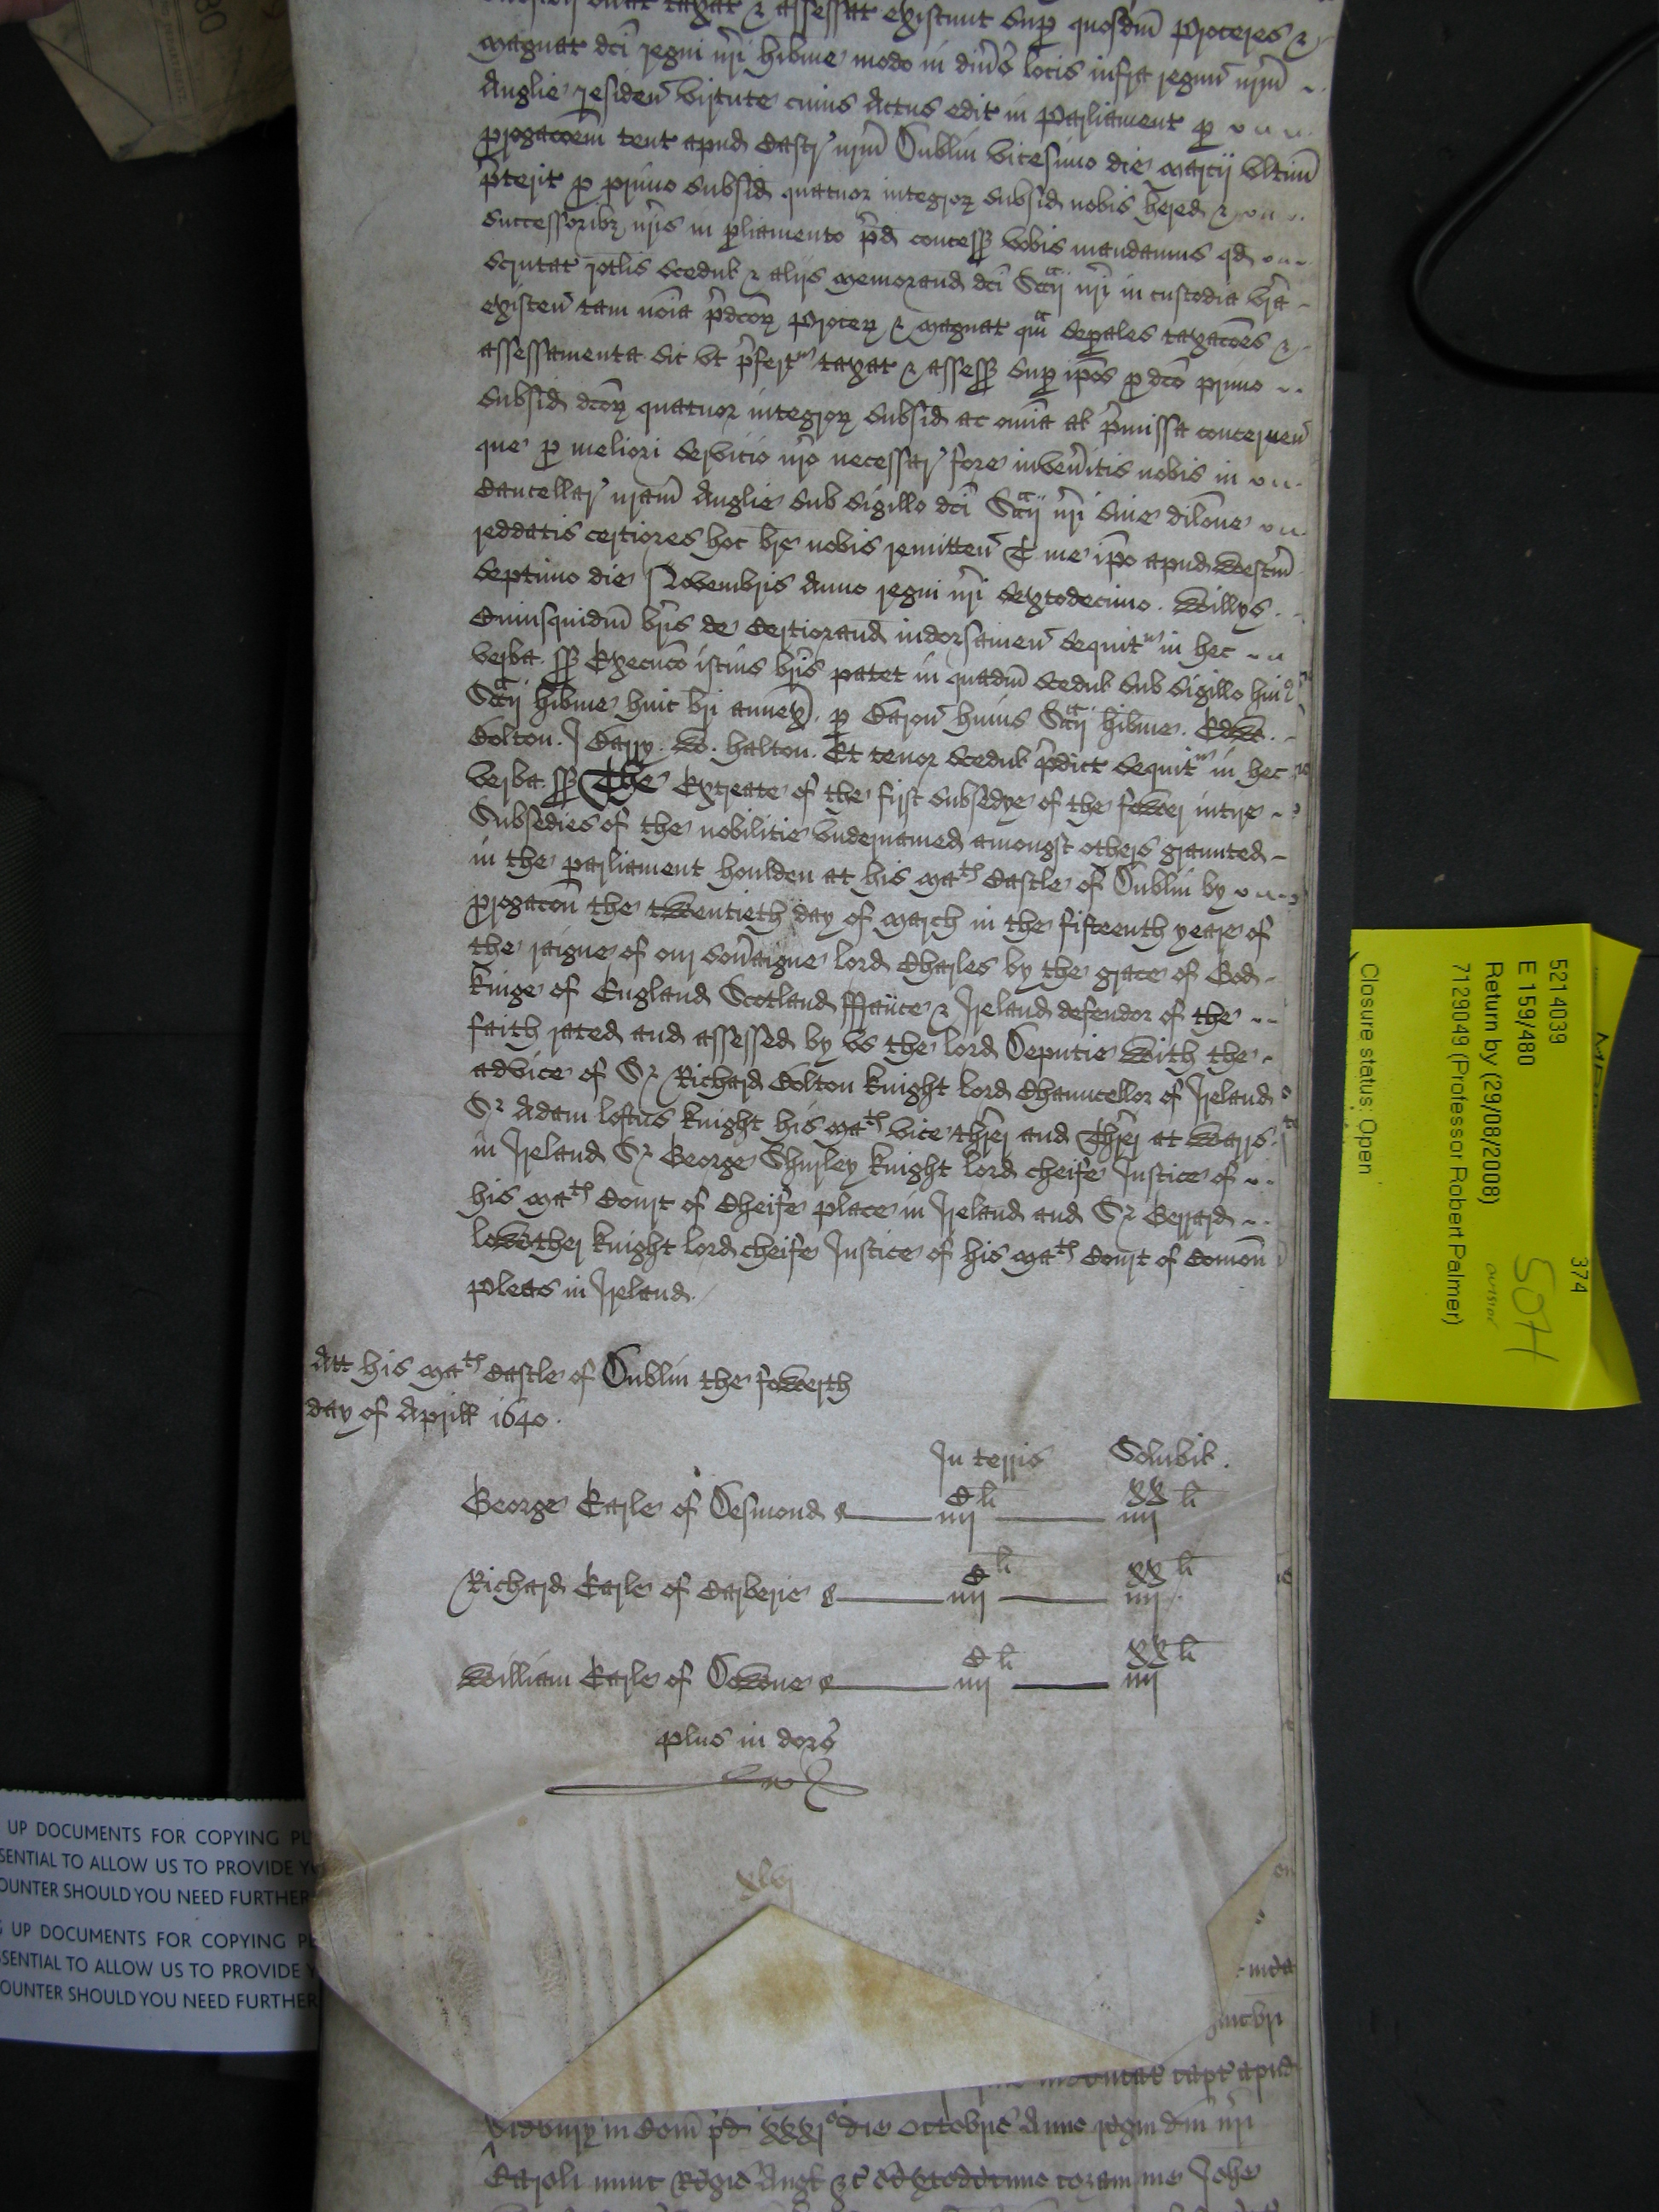 taxat & assessat existunt sup quosdm Proceres &
magnat dci regni nri hibnie modo in divs locis infra regnu nrm
Anglie residen virtute cuius Actus edit in Parliament p
progacoem tent apud Castr nrm Dublin vicesimo die marcij ultim
pterit p primo subsid quatuor integror subsid nobis hered &
successoribz nris in pliamento pd concess vobis mandamus qd
scrutat rotlis Cedul & alijs memorand dci Sccij nri in custodia vra
existen tam noia pdcor Procer & magnat qm sepales taxacoes &
assessamenta sic ut pfert taxat & assess sup ipos p dco primo
subsid dcor quatuor integror subsid ac omia al pmissa concernen
que p meliori servicio nro necessar fore invenitis nobis in
Cancellar nram Anglie sub sigillo dci Sccij nri sine dilone
reddatis certiores hoc bre nobis remitten T me ipo apud Westm
septimo die Novembris Anno regni nri sextodecimo. Willys.
Cuiusquidm bris de Certiorand indorsamen sequit in hec
verba. ss Execuco istius bris patet in quadm Cedul sub sigillo hui9
Sccij hibnie huic bri annex. p Baron huius Sccij hibnie. Edw.
Bolton. J Barry. W. halton. Et tenor Cedul pdict sequit in hec
verba. ss The Extreate of the first Subsedye of the fower intire
Subsedies of the nobilitie undernamed amongst others graunted
in the parliament houlden at his Maties Castle of Dublin by
progacon the twentieth day of March in the fifteenth yeare of
the raigne of our Sovraigne lord Charles by the grace of God
kinge of England Scotland ffrance & Ireland defendor of the
faith rated and assessed by us the lord Deputie with the
advice of Sr Richard Bolton knight lord Chauncellor of Ireland
Sr Adam loftus knight his Maties vice threr and Threr at warrs
in Ireland Sr George Shurley knight lord cheife Justice of
his Maties Court of Cheife place in Ireland and Sr Gerrard
lowther knight lord cheife Justice of his Maties Court of Comon
Pleas in Ireland.
Att his Maties Castle of Dublin the fowerth
day of Aprill 1640.
In terris Solubil.
George Earle of Desmond iiij C li iiij xx li
Richard Earle of Carberie iiij C li iiij xx li
William Earle of Downe iiij C li iiij xx li
plus in dors
xlvj
capt apud
in Com pd xxxj die Octobris Anno regni dni nri
Caroli nunc Regis Angl &c sextodecimo coram me Johe
5214039
374
E 159/480
Return by (29/08/2008)
7129049 (Professor Robert Palmer)
Closure status: Open
UP DOCUMENTS FOR COPYING PL
SENTIAL TO ALLOW US TO PROVIDE Y
OUNTER SHOULD YOU NEED FURTHER
UP DOCUMENTS FOR COPYING PL
SENTIAL TO ALLOW US TO PROVIDE Y
OUNTER SHOULD YOU NEED FURTHER